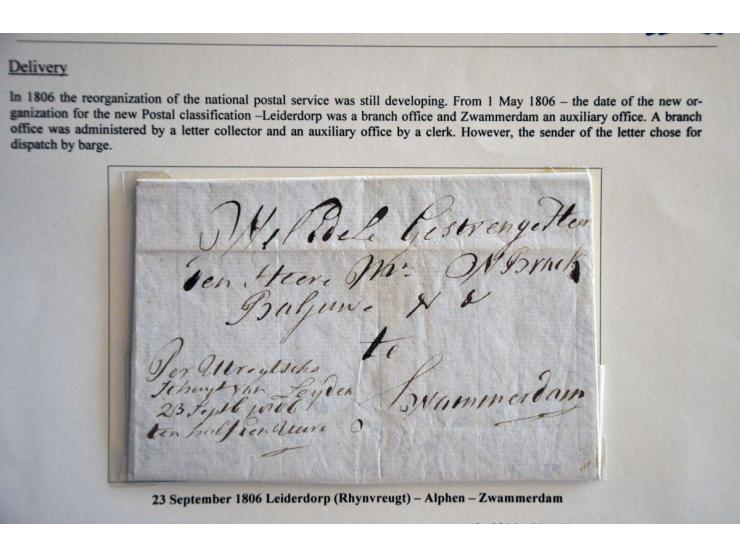 Delivery
In 1806 the reorganization of the national postal service was still developing. From 1 May 1806 – the date of the new or-
ganization for the new Postal classification –Leiderdorp was a branch office and Zwammerdam an auxiliary office. A branch
office was administered by a letter collector and an auxiliary office by a clerk. However, the sender of the letter chose for
dispatch by barge.
Gestrenge Heer
den Heere Mr. N Brack
Baljuw. & &
te
Per Utregtsche
Schuyt van Leyden
23 Septb 1806
ten half tien Uure
Swammerdam
23 September 1806 Leiderdorp (Rhynvreugt) – Alphen – Zwammerdam